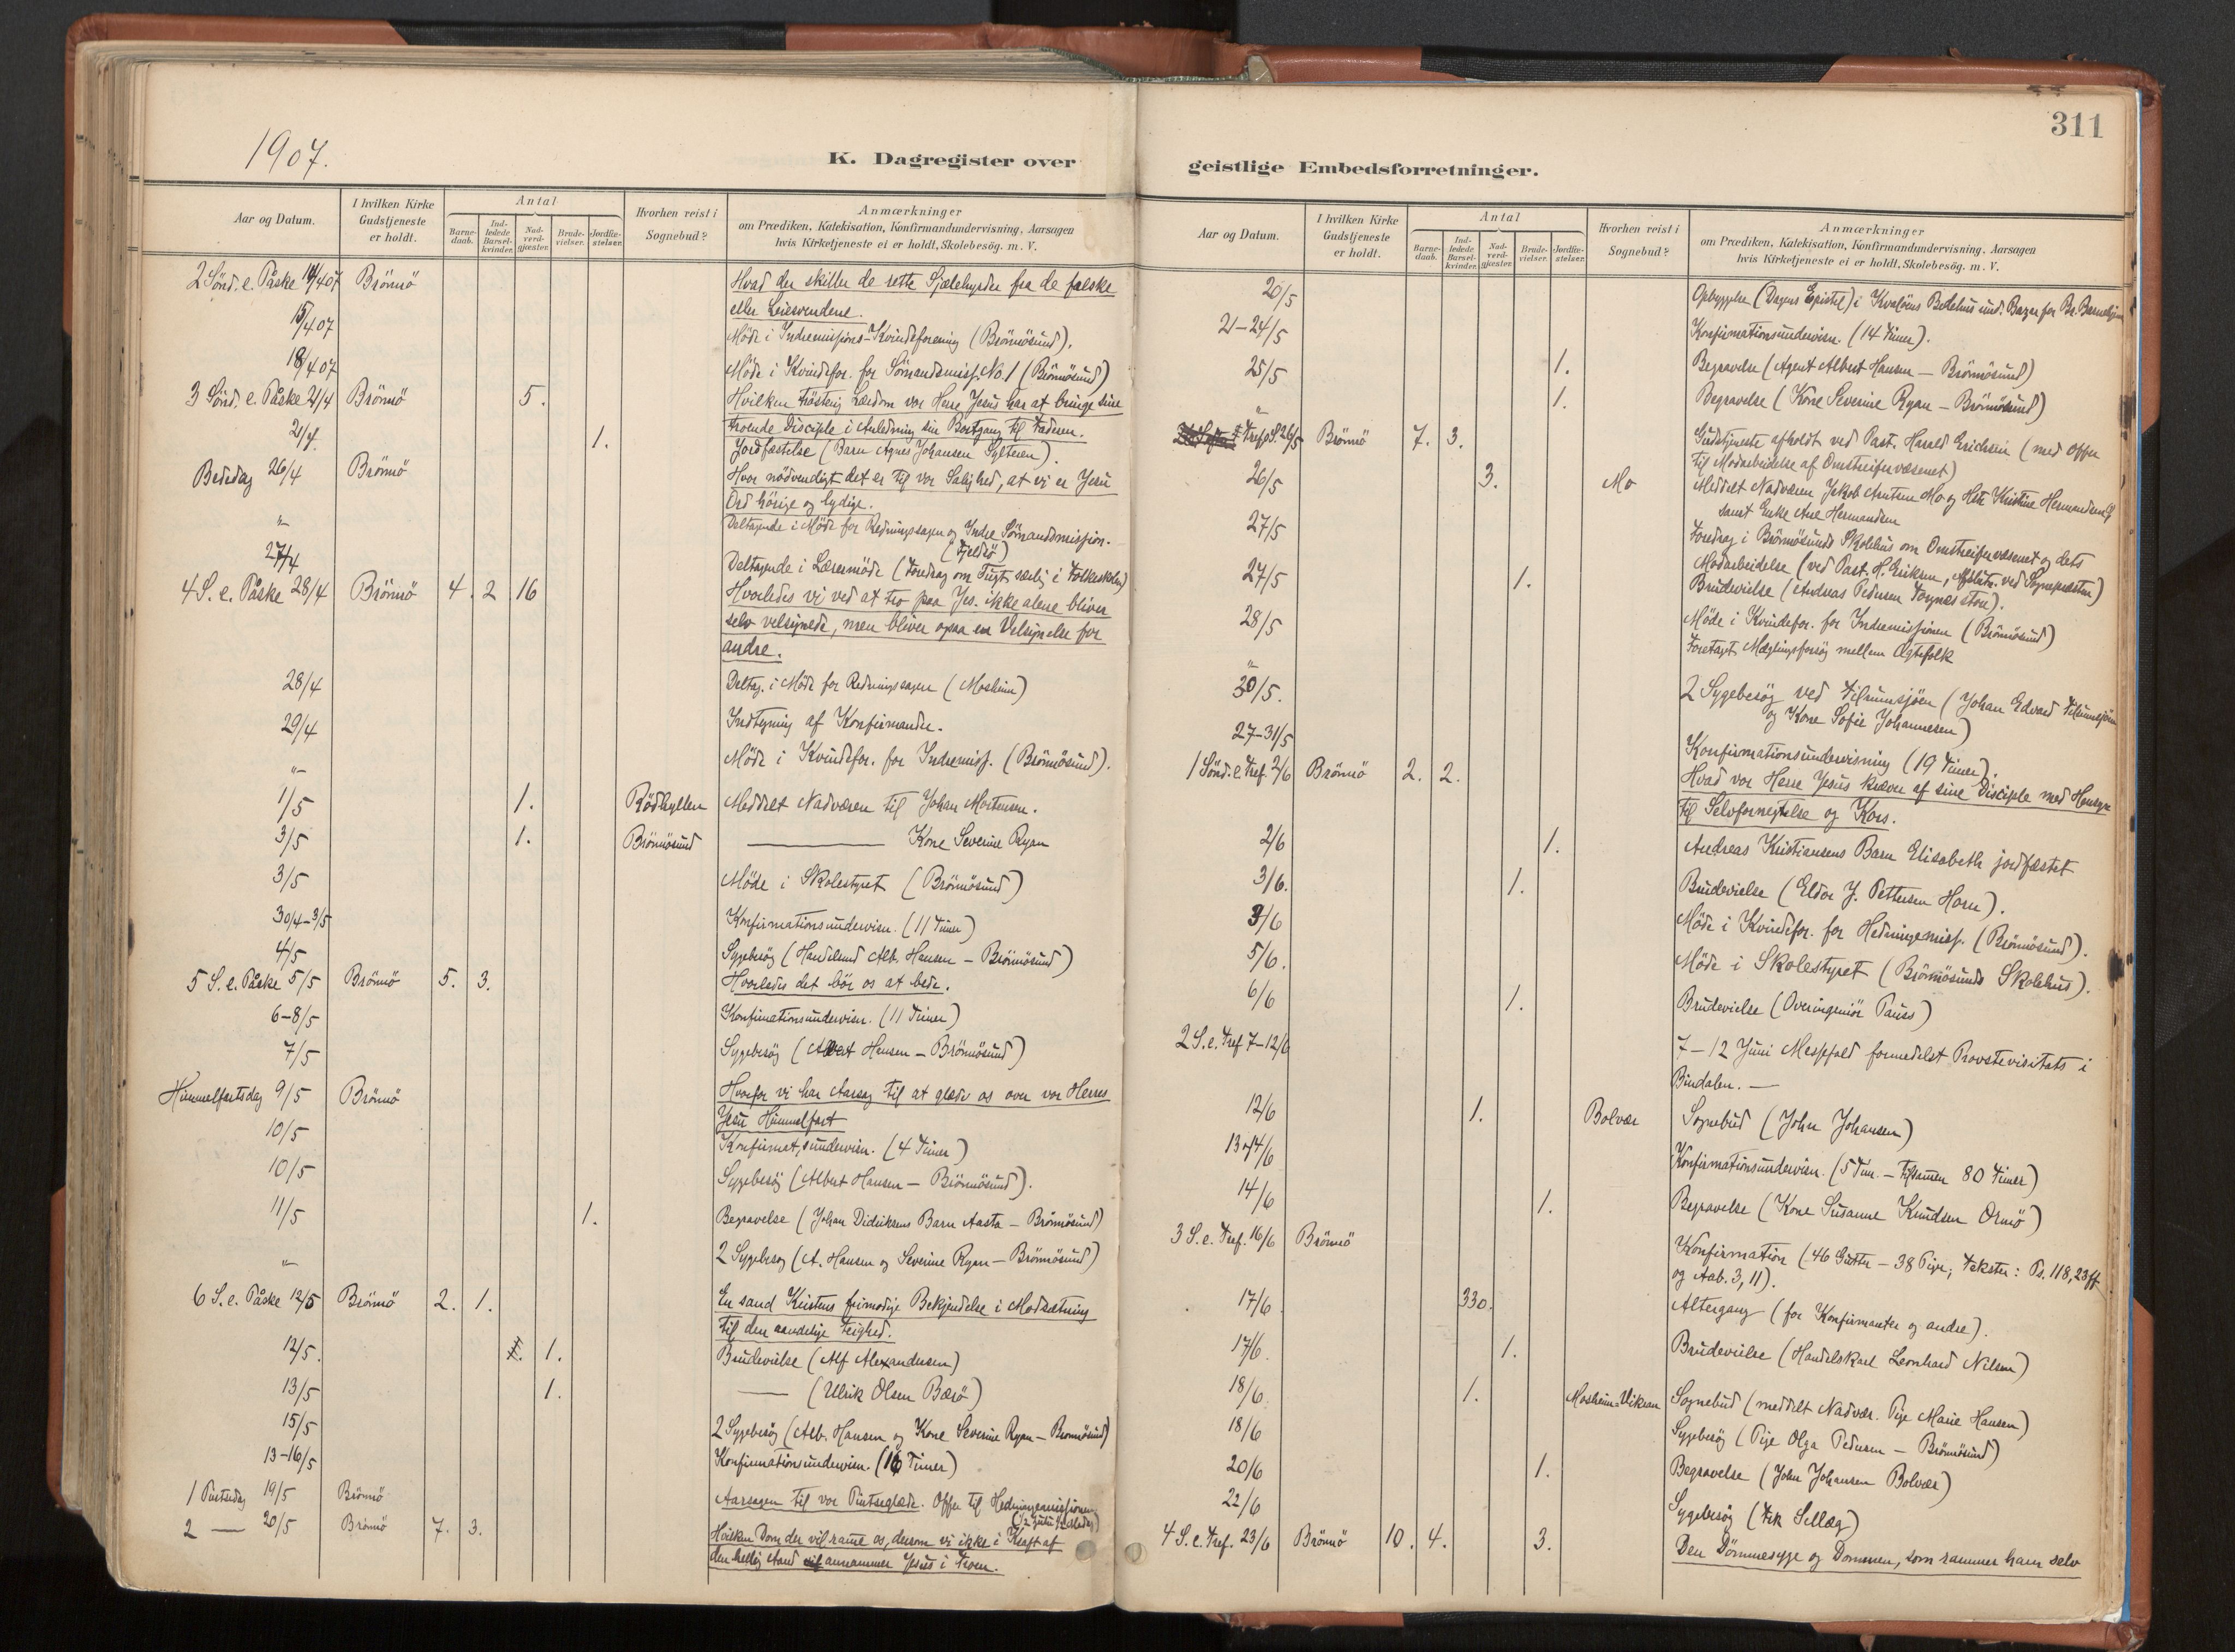 1907.
K. Dagregister over
Aar og Datum.
I hvilken Kirke
Gudstjeneste
er holdt.
Antal
Barne-
daab.
Ind-
ledede
Barsel-
kvinder.
Nad-
verd-
gjæster.
Brude-
vielser.
Jordfæ-
stelser.
Hvorhen reist i
Sognebud?
Anmærkninger
om Prædiken, Katekisation, Konfirmandundervisning, Aarsagen
hvis Kirketjeneste ei er holdt, Skolebesög. m. V.
2 Sönd. e. Påske 14/4 07 Brönnö Hvad der skiller de rette Sjælehyrder fra de falske
eller Leiesvendene.
15/4 07 Möde i Indremissions-Kvindeforening (Brönnösund).
18/4 07 Möde i Kvindefor. for Sömandsmiss. No. 1 (Brönnösund)
3 Sönd. e. Påske 21/4 Brönnö 5. Hvilken trösterig Lærdom vor Herre Jesus har at bringe sine
troende Disciple i Anledning sin Bortgang til Faderen.
21/4 1. Jordfæstelse (Barn Agnes Johansen Sylteren).
Bededag 26/4 Brönnö Hvor nödvendigt det er til vor Salighed, at vi er Jesu
Ord hörige og lydige.
" Deltagende i Möde for Redningssagen og Indre Sömandsmission.
(Tjeldö)
27/4 Deltagende i Læremöde (Foredrag om Tugt særlig i Folkeskolen)
4 S. e. Påske 28/4 Brönnö 4. 2 16 Hvorledes vi ved at tro paa Jes. ikke alene bliver
selv velsignede, men bliver ogsaa en Velsignelse for
andre.
28/4 Deltag. i Möde for Redningssagen (Mosheim)
29/4 Indtegning af Konfirmander.
" Möde i Kvindefor. for Indremiss. (Brönnösund).
1/5 1. Rödhyllen Meddelt Nadveren til Johan Mortensen.
3/5 1. Brönnösund — Kone Severine Ryan
3/5 Möde i Skolestyret (Brönnösund)
30/4-3/5 Konfirmationsundervisn. (11 Timer)
4/5 Sygebesög (Handelsmd Alb. Hansen - Brönnösund)
5 S. e. Påske 5/5 Brönnö 5. 3. Hvorledes det bör os at bede.
6-8/5 Konfirmationsundervisn. (11 Timer)
7/5 Sygebesög (Albert Hansen - Brönnösund)
Himmelfartsdag 9/5 Brönnö Hvorfor vi har Aarsag til at glæde os over vor Herres
Jesu Himmelfart
10/5 Konfirmat,sundervisn. (4 Timer)
10/5 Sygebesög (Albert Hansen - Brönnösund).
11/5 1. Begravelse (Johan Didriksens Barn Aasta - Brönnösund)
" 2 Sygebesög (A. Hansen og Severine Ryan - Brönnösund)
6 S. e. Påske 12/5 Brönnö 2. 1. En sand Kristens frimodige Bekjendelse i Modsætning
til den aandelige Feighed.
12/5. 1. Brudevielse (Alf Alexandersen)
13/5 1. — (Ulrik Olsen Bærö)
15/5 2 Sygebesög (Alb. Hansen og Kone Severine Ryan - Brønnøsund)
13-16/5 Konfirmationsundervisn. (16 Timer)
1 Pintsedag 19/5 Brönnö Aarsagen til vor Pintseglæde. Offer til Hedningemissionen
2 — 20/5 Brönnö 7. 3. Hvilken Dom der vil ramme os, dersom vi ikke i Kraft af
den hellig Aand annammer Jesus i Troen.
311
geistlige Embedsforretninger.
Aar og Datum.
I hvilken Kirke
Gudstjeneste
er holdt.
Antal
Barne-
daab.
Ind-
ledede
Barsel-
kvinder.
Nad-
verd-
gjæster.
Brude-
vielser.
Jordfæ-
stelser.
Hvorhen reist i
Sognebud?
Anmærkninger
om Prædiken, Katekisation, Konfirmandundervisning, Aarsagen
hvis Kirketjeneste ei er holdt, Skolebesög. m. V.
20/5 Opbyggelse (Dagens Epistel) i Kvalöens Bedehus und. Bazar for Br. Barnehjem
21-24/5 Konfirmationsundervisn. (14 Timer).
25/5 1. Begravelse (Agent Albert Hansen - Brönnösund)
" 1. Begravelse (Kone Severine Ryan - Brönnösund)
Tref. S. 26/5 Brönnö 7. 3. Gudstjeneste afholdt ved Past. Harald Erichsen (med Offer
til Modarbeidelse af Omstreifervæsenet)
26/5 3. Mo Meddelt Nadveren Jakob Arntsen Mo og Kristine Hermandsen
samt Enke Ane Hermandsen
27/5 Foredrag i Brönnösunds Skolehus om Omstreifervæsenet og dets
Modarbeidelse (ved Past. H. Eriksen, Afslutn. ved Sognepræsten)
27/5 1. Brudevielse (Andreas Pedersen Torgnes store).
28/5 Möde i Kvindefor. for Indremissionen (Brönnösund)
" Foretaget Mæglingsforsög mellem Ægtefolk
30/5. 2 Sygebesög ved Tilrumsjöen (Johan Edvard Tilrumsjöen
og Kone Sofie Johannesen)
27-31/5 Konfirmationsundervisning (19 Timer).
1 Sönd. e. Tref. 2/6 Brönnö 2. 2. Hvad vor Herre Jesus kræver af sine Disciple med Hensyn
til Selvfornegtelse og Kors.
2/6 1. Andreas Kristiansens Barn Elisabeth jordfæstet
3/6. 1. Brudevielse (Eldor J. Pettersen Horn).
3/6 Möde i Kvindefor. for Hedningemiss. (Brönnösund).
5/6. Möde i Skolestyret (Brönnösunds Skolehus).
6/6 1. Brudevielse (Overingeniör Pauss)
2 S. e. Tref. 7-12/6 7-12 Juni Messefald formedelst Provstevisitats i
Bindalen. —
12/6 1. Bolvær Sognebud (John Johansen)
13 og 14/6 Konfirmationsundervisn. (5 Tim. - tilsammen 80 Timer)
14/6 1. Begravelse (Kone Susanne Knudsen Ormö)
3 S. e. Tref. 16/6 Brönnö Konfirmation (46 Gutter - 38 Piger; Tekster: Ps. 118, 23 ff
og Aab. 3, 11).
17/6. 330. Altergang (for Konfirmanter og andre).
17/6. 1. Brudevielse (Handelskarl Leonhard Nilsen)
18/6. 1. Mosheim-Vikran Sognebud (meddelt Nadver. Pige Marie Hansen)
18/6 Sygebesög (Pige Olga Pedersen - Brönnösund)
20/6 1. Begravelse (John Johansen Bolvær)
22/6 Sygebesög
4 S. e. Tref. 23/6 Brönnö 10. 4. 3. Den Dömmesyge og Dommen, som rammer ham selv